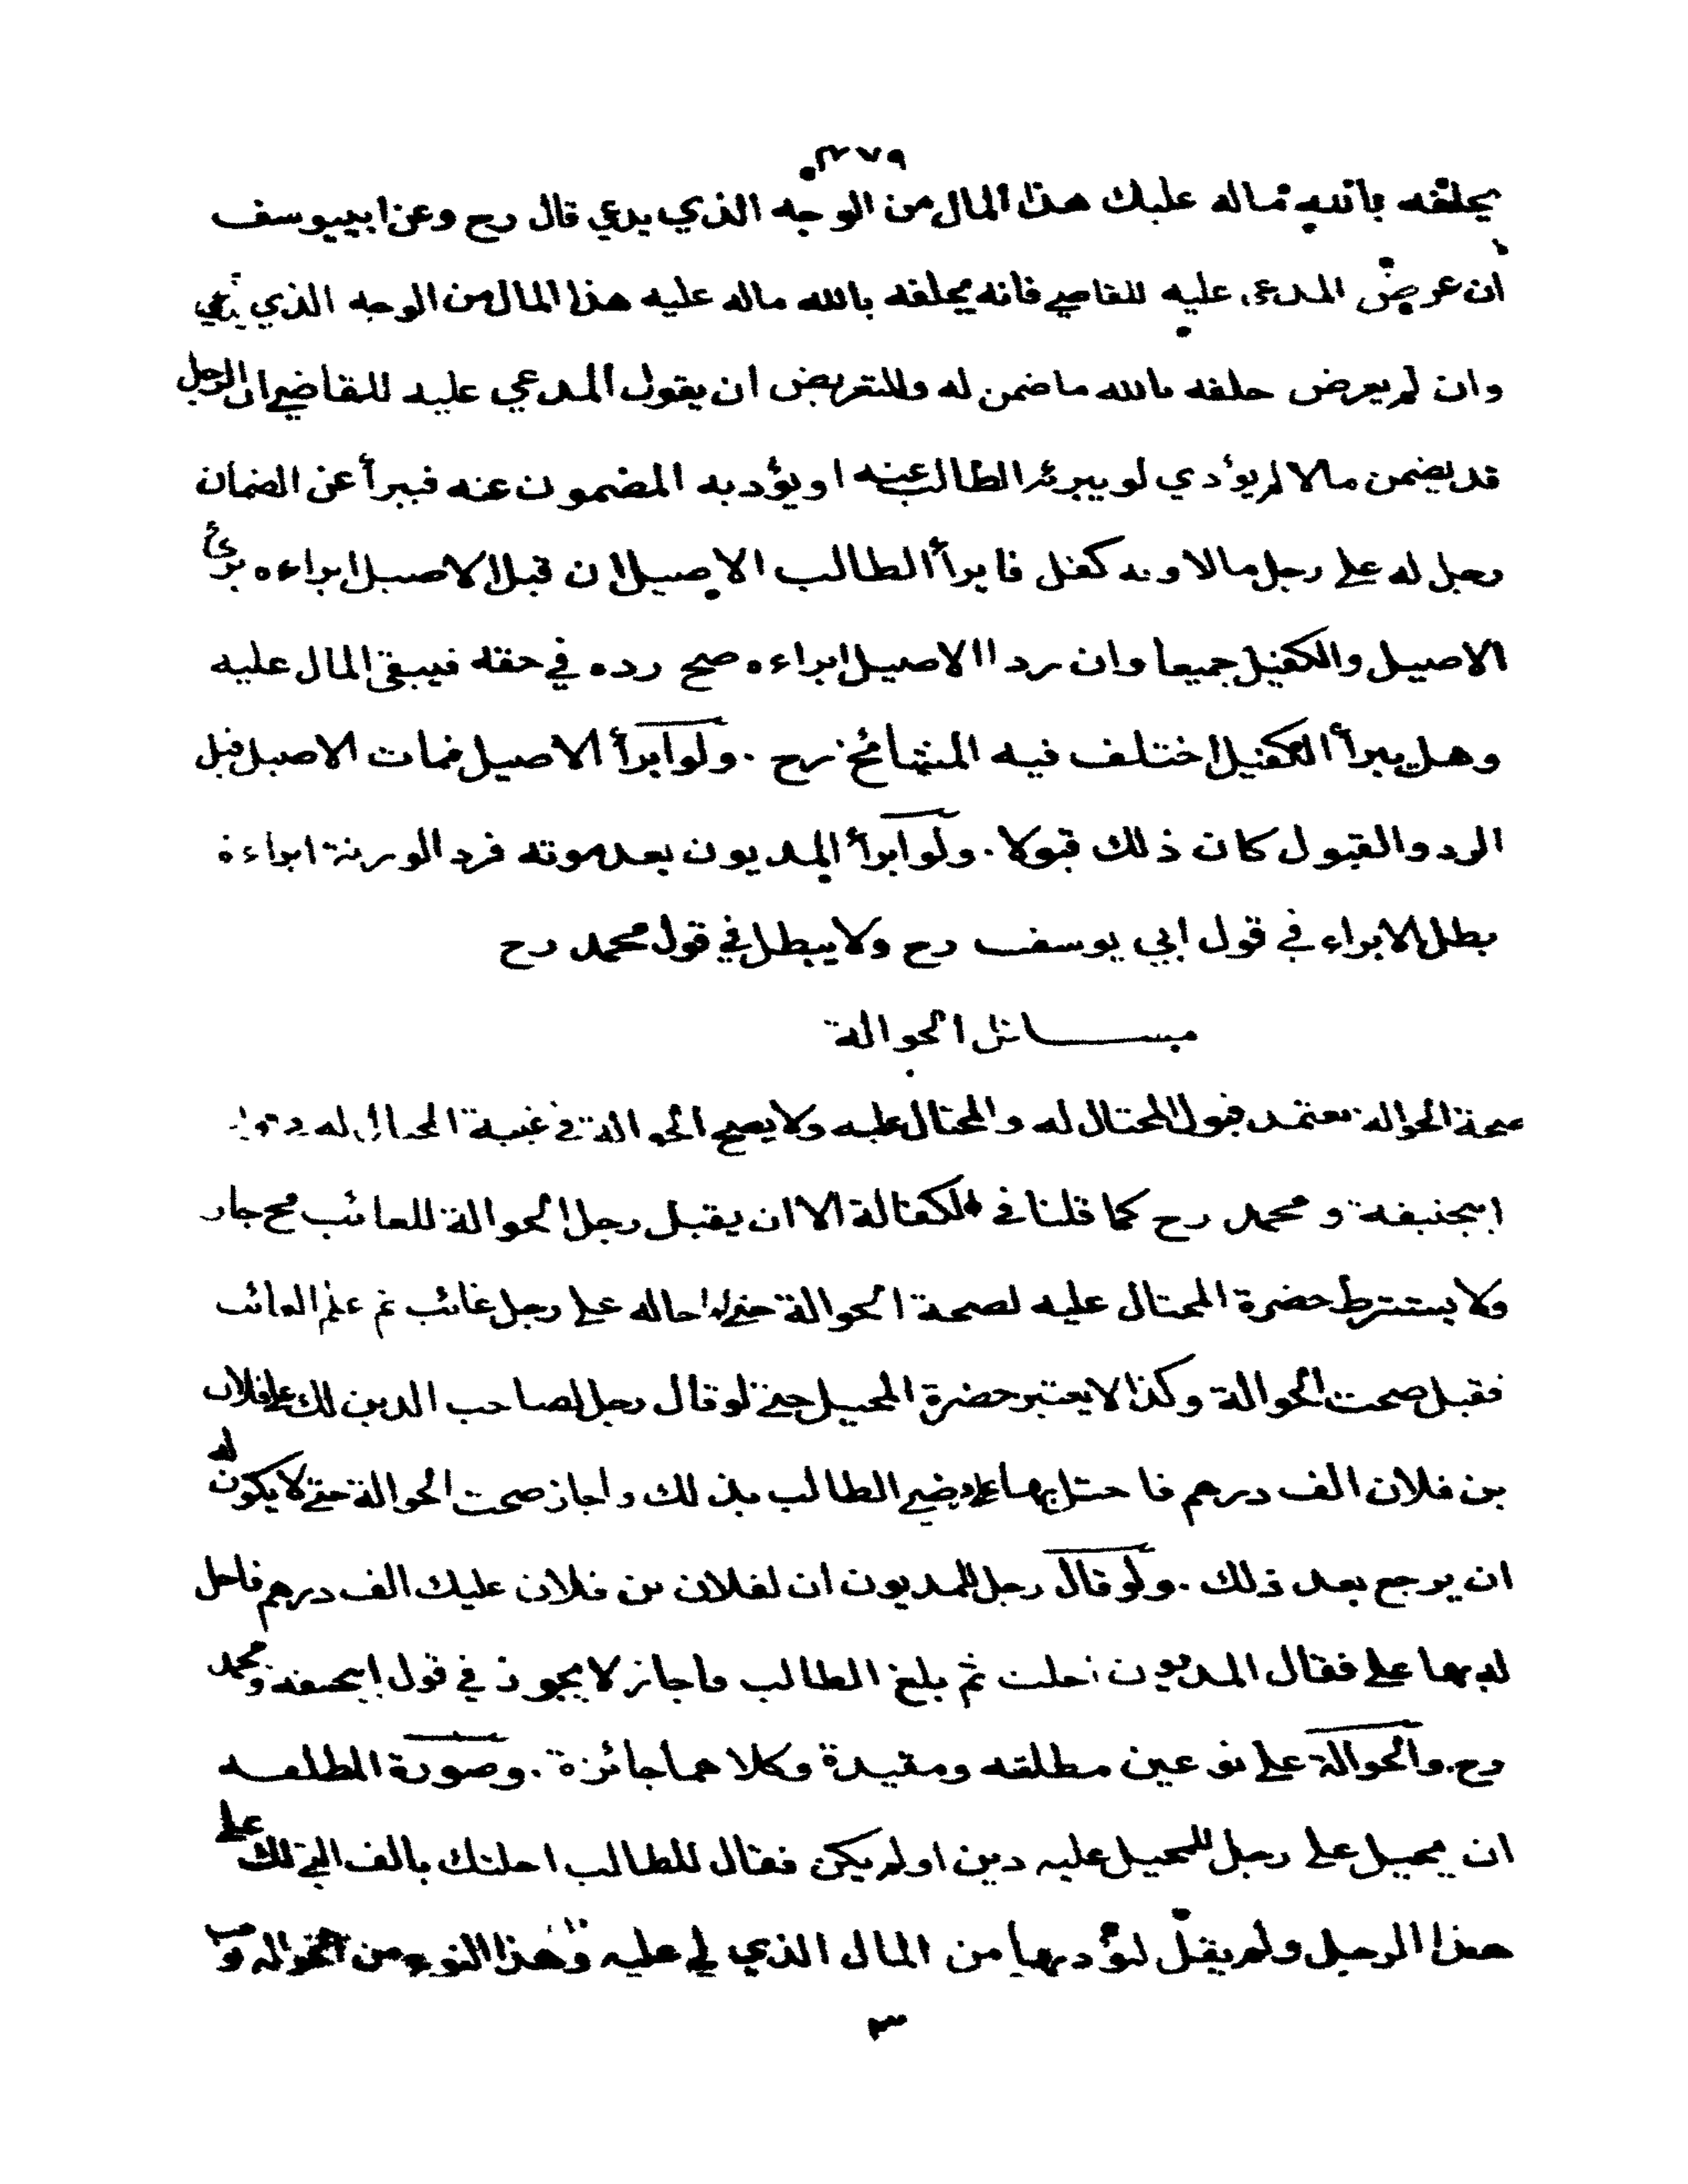 ٤٧٩
يحلفه بالله ماله عليك هذا المال من الوجه الذي يدعي قال رح وعن ابييوسف
ان عرض المدعى عليه للقاضي فانه يحلفه بالله ماله عليه هذا المال من الوجه الذي يدعي
وان لم يعرض حلفه بالله ما ضمن له وللتعريض ان يقول المدعي عليه للقاضي ان الرجل
قد يضمن مالا لم يؤدي لو يبرئه الطالب عنه او يؤديه المضمون عنه فيبرأ عن الضمان
رجل له على رجل مالا وبه كفل فابرأ الطالب الاصيل ان قبل الاصيل ابراءه برئ
الاصيل والكفيل جميعا وان رد الاصيل ابراءه صح رده في حقه فيبقى المال عليه
وهل يبرأ الكفيل اختلف فيه المشائخ رح . ولو ابرأ الاصيل فمات الاصيل قبل
الرد والقبول كان ذلك قبولا . ولو ابرأ المديون بعد موته فرد الورثة ابراءة
بطل الابراء في قول ابي يوسف رح ولا يبطل في قول محمد رح
مسائل الحوالة
صحة الحوالة تعتمد قبول المحتال له والمحتال عليه ولا يصح الحوالة في غيبة المحتال له في قول
ابيحنيفة و محمد رح كما قلنا في الكفالة الا ان يقبل رجل الحوالة للغائب صح جاز
ولا يشترط حضرة المحتال عليه لصحة الحوالة حتى لو احاله على رجل غائب ثم علم الغائب
فقبل صحت الحوالة وكذا لا يعتبر حضرة المحيل حتى لو قال رجل لصاحب الدين لك على فلان
بن فلان الف درهم فاحتل بها علي ورضي الطالب بذلك واجاز صحت الحوالة حتى لا يكون له
ان يرجع بعد ذلك . ولو قال رجل للمديون ان لفلان بن فلان عليك الف درهم فاحل
له بها علي فقال المديون احلت ثم بلغ الطالب فاجاز لا يجوز في قول ابيحنيفه ومحمد
رح . والحوالة على نوعين مطلقه ومقيدة وكلاهما جائزة . وصورة المطلقه
ان يحيل على رجل للمحيل عليه دين او لم يكن فقال للطالب احلتك بالف التي لك على
هذا الرجل ولم يقل ليؤديها من المال الذي لي عليه وهذا النوع من الحواله
٣